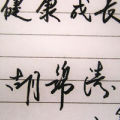 健康成长
胡锦涛